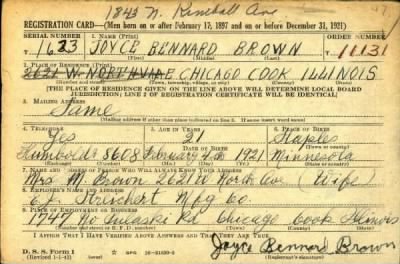 1843 N. Kimball Ave
REGISTRATION CARD—(Men born on or after February 17, 1897 and on or before December 31, 1921)
SERIAL NUMBER 1. NAME (Print) ORDER NUMBER
T 1623 JOYCE BENNARD BROWN 11131
(First) (Middle) (Last)
2. PLACE OF RESIDENCE (Print)
2621 W. NORTH AVE CHICAGO COOK ILLINOIS
(Number and street) (Town, township, village, or city) (County) (State)
[THE PLACE OF RESIDENCE GIVEN ON THE LINE ABOVE WILL DETERMINE LOCAL BOARD
JURISDICTION; LINE 2 OF REGISTRATION CERTIFICATE WILL BE IDENTICAL]
3. MAILING ADDRESS
Same
[Mailing address if other than place indicated on line 2. If same insert word same]
4. TELEPHONE 5. AGE IN YEARS 6. PLACE OF BIRTH
Yes 21 Staples
DATE OF BIRTH
Humboldt 5608 February 1921 Minnesota
7. NAME AND ADDRESS OF PERSON WHO WILL ALWAYS KNOW YOUR ADDRESS
Mrs Brown W North Ave Wife
8. EMPLOYER'S NAME AND ADDRESS
Mfg Co.
9. PLACE OF EMPLOYMENT OR BUSINESS
1747 No Pulaski Rd Chicago Cook Illinois
I AFFIRM THAT I HAVE VERIFIED ABOVE ANSWERS AND THAT THEY ARE TRUE.
Joyce Bennard Brown
D. S. S. Form 1
(Revised 1-1-42) (Registrant's signature)